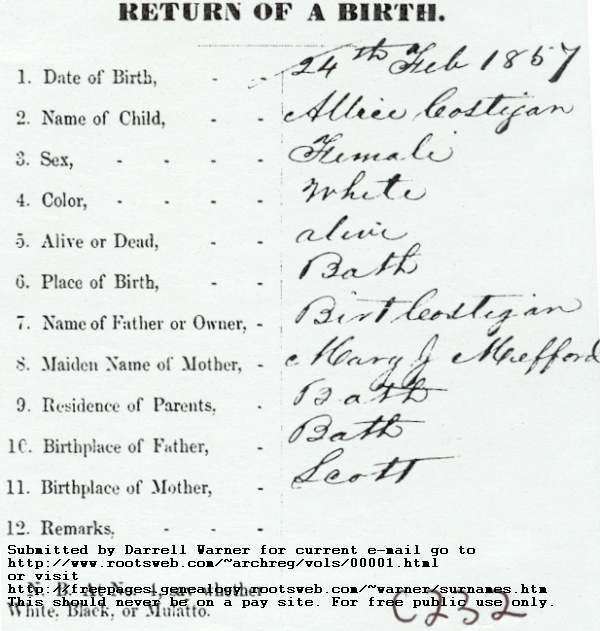 RETURN OF A BIRTH.
1. Date of Birth, - - 24th Feb 1857
2. Name of Child, - - Allice Costigan
3. Sex, - - - - Female
4. Color, - - - White
5. Alive or Dead, - - alive
6. Place of Birth, - - Bath
7. Name of Father or Owner, - Birt Costigan
8. Maiden Name of Mother, - Mary J Mefford
9. Residence of Parents, - Bath
10. Birthplace of Father, - Bath
11. Birthplace of Mother, - Scott
12. Remarks, - - -
Submitted by Darrell Warner for current e-mail go to
http://www.rootsweb.com/~archreg/vols/00001.html
or visit
http://freepages.genealogy.rootsweb.com/~warner/surnames.htm
This should never be on a pay site. For free public use only.
White, Black, or Mulatto.
C232